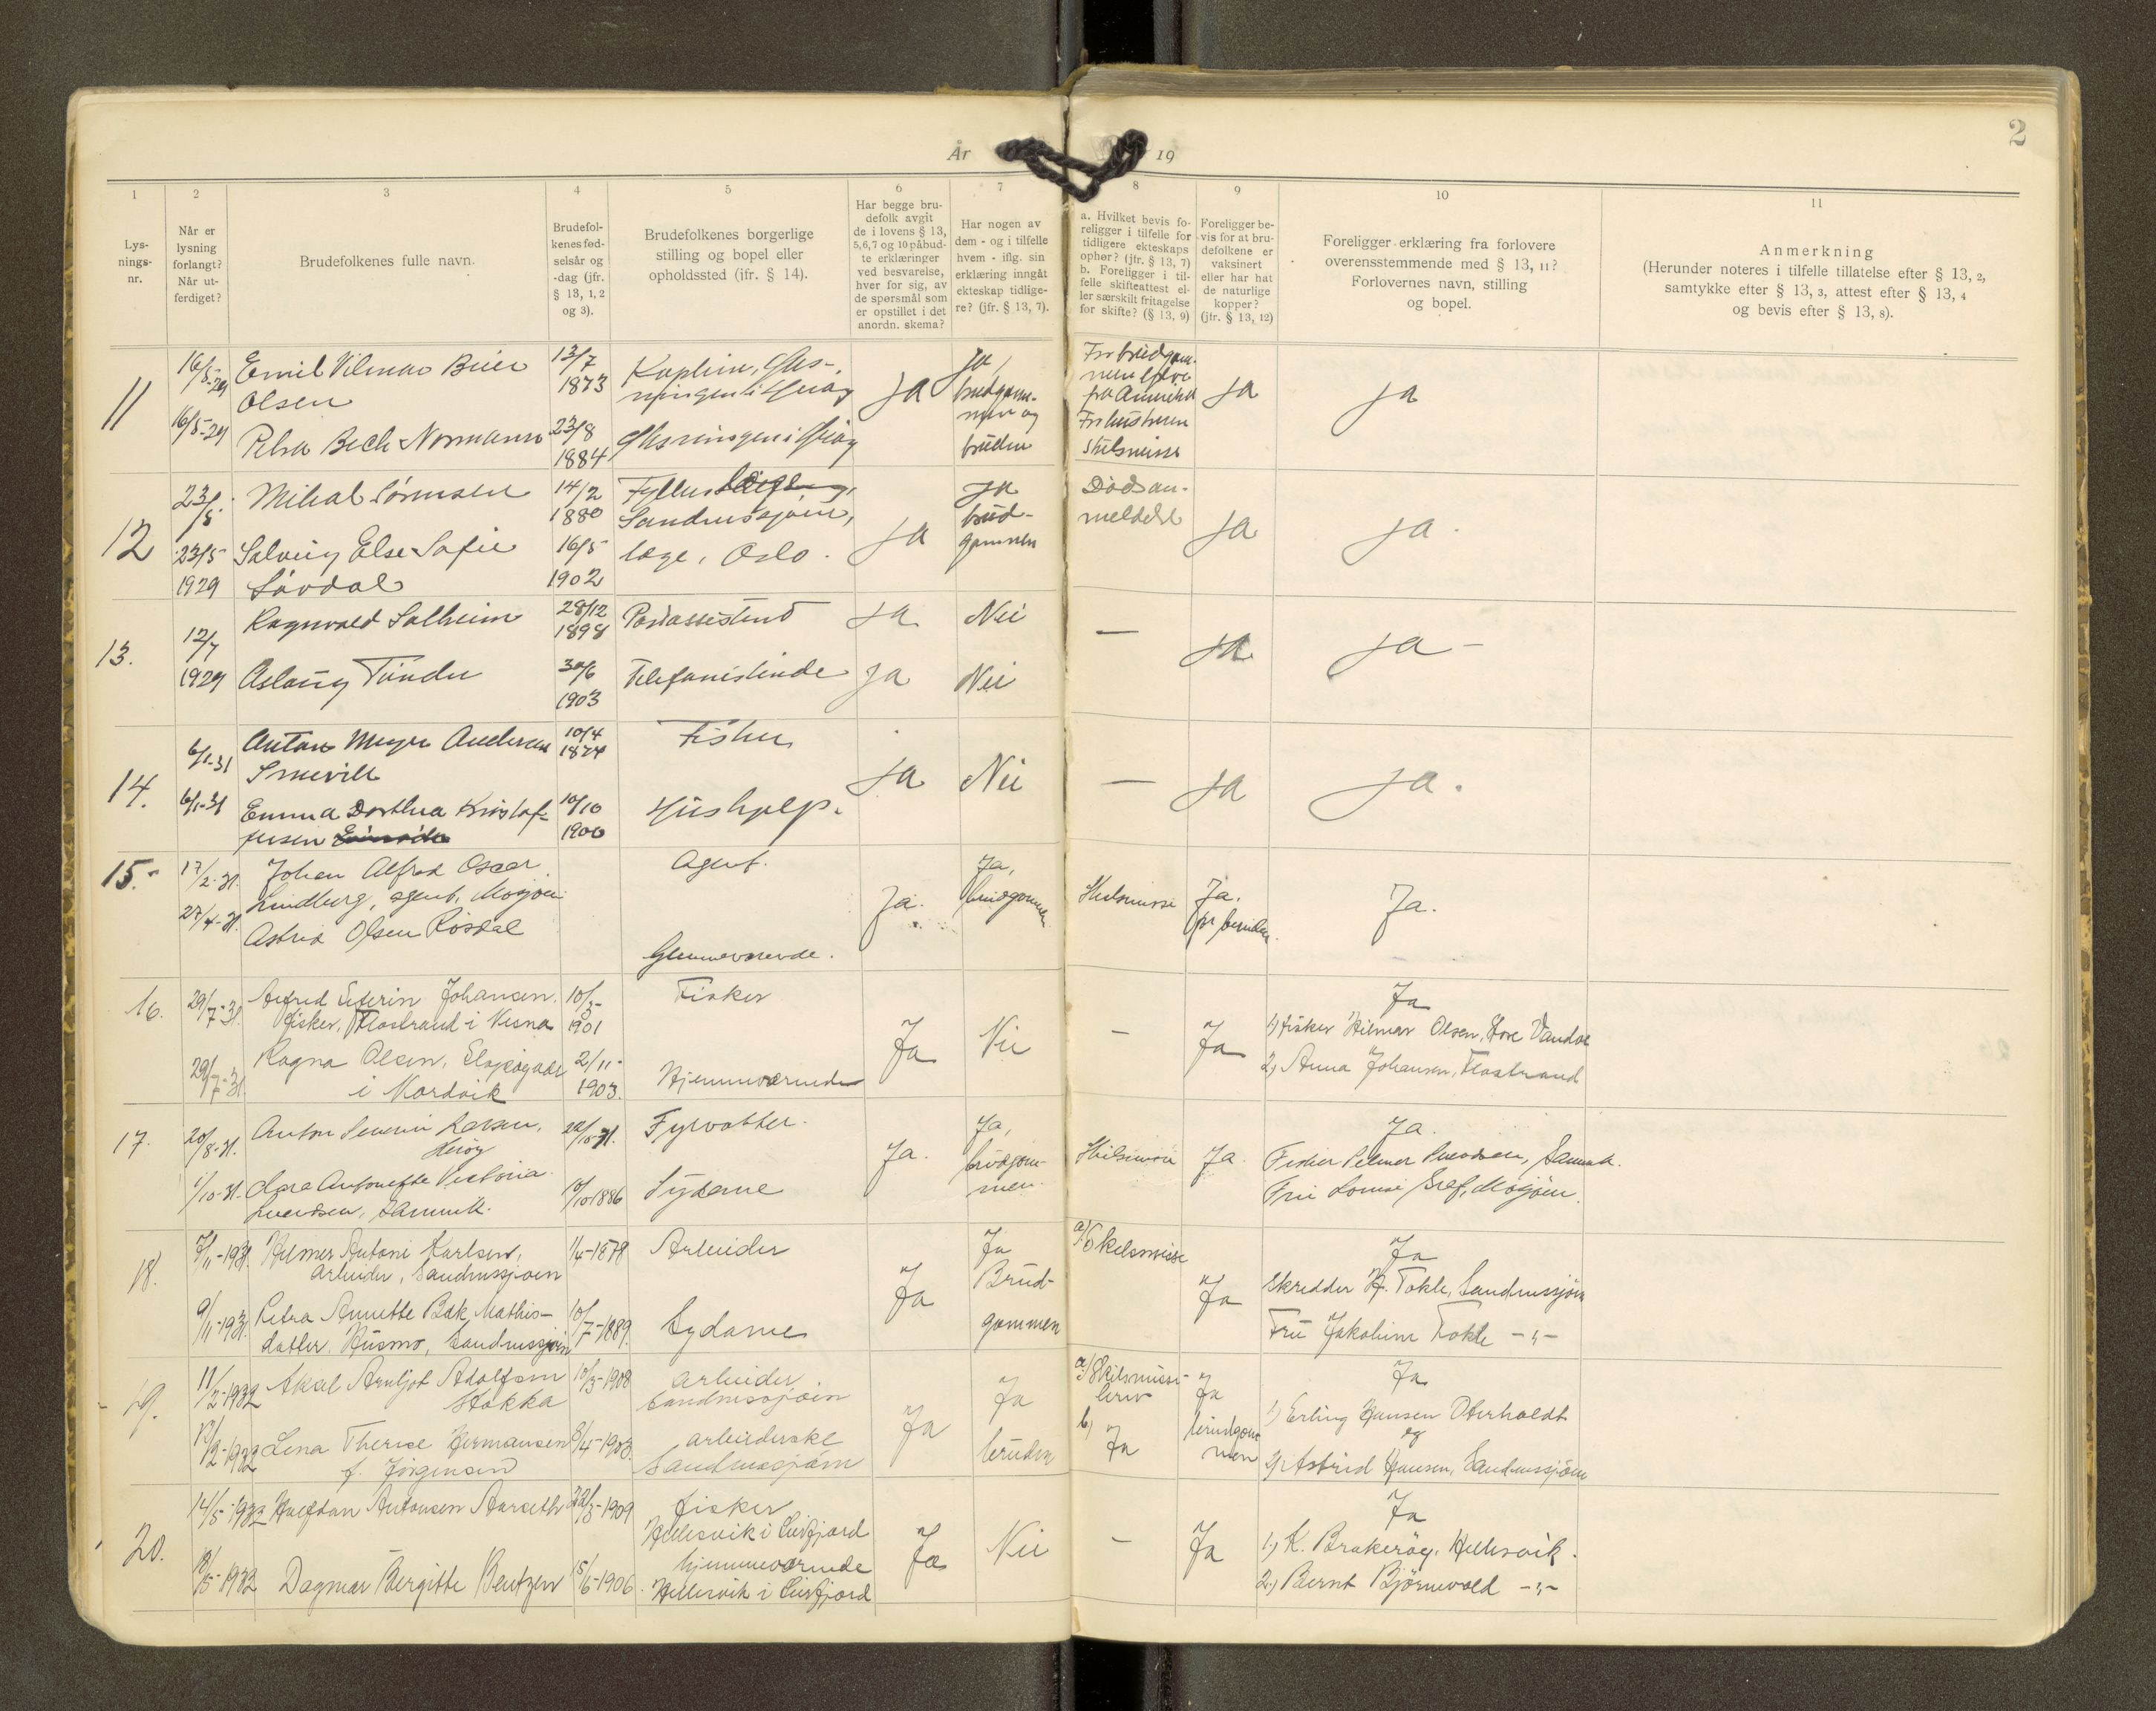 2
År 19
1 2 3 4 5 6 7 8 9 10 11
Lys-
nings-
nr.
Når er
lysning
forlangt?
Når ut-
ferdiget?
Brudefolkenes fulle navn.
Brudefol-
kenes fød-
selsår og
-dag (jfr.
§ 13, 1, 2
og 3).
Brudefolkenes borgerlige
stilling og bopel eller
opholdssted (jfr. § 14).
Har begge bru-
defolk avgit
de i lovens § 13,
5, 6, 7 og 10 påbud-
te erklæringer
ved besvarelse,
hver for sig, av
de spørsmål som
er opstillet i det
anordn. skema?
Har nogen av
dem - og i tilfelle
hvem - iflg. sin
erklæring inngåt
ekteskap tidlige-
re? (jfr. § 13, 7).
a. Hvilket bevis fo-
religger i tilfelle for
tidligere ekteskaps
ophør? (jfr. § 13, 7)
b. Foreligger i til-
felle skifteattest el-
ler særskilt fritagelse
for skifte? (§ 13, 9)
Foreligger be-
vis for at bru-
defolkene er
vaksinert
eller har hat
de naturlige
kopper?
(jfr. § 13, 12)
Foreligger erklæring fra forlovere
overensstemmende med § 13, 11?
Forlovernes navn, stilling
og bopel.
Anmerkning
(Herunder noteres i tilfelle tillatelse efter § 13, 2,
samtykke efter § 13, 3, attest efter § 13, 4
og bevis efter § 13, 8).
11
16/5-29
16/5-29
Emil Vilmar Beier
Olsen
Petra Bech Normann
13/7
1873
23/8
1884
Ja
Ja,
brudgom-
men og
bruden
For brudgom-
men
fra Amerika
For hustruen
Skilsmisse
Ja
Ja
12
23/5
23/5
1929
Mikal Sörensen
Solveig Else Sofie
Lövdal
14/2
1880
16/5
1902
Sandnessjöen,
læge, Oslo.
Ja
Ja
brud-
gommen
Dödsan-
meldelse
Ja
Ja
13.
12/7
1929
Ragnvald Solheim
Aslaug Tunder
28/12
1898
30/6
1903
Postassistent
Telefonistinde
Ja
Ja
Nei
Nei
—
Ja
Ja -
14.
6/1-31
6/1-31
Anton Meyer Andersen
Emma Dorthea Kristof-
fersen
10/4
1874
10/10
1900
Fisker
Hushjelp.
Ja
Nei
—
Ja
Ja.
15.
17/2-31.
27/4-31.
Johan Alfred Oscar
Lindberg, agent, Mosjöen
Astrid Olsen Rösdal
Agent.
Hjemmeværende.
Ja.
Ja,
brudgommen
Skilsmisse
Ja.
for bruden.
Ja.
16.
29/7-31.
29/7-31.
Alfred Severin Johansen.
fisker, Flostrand i Nesna
Ragna Olsen,
i Nordvik
10/3-
1901
2/11-
1903.
Fisker
Hjemmeværende
Ja
Nei
—
Ja
Ja
1) fisker Hilmar Olsen,
2, Anna Johansen, Flostrand
17.
20/8-31.
1/10-31.
Anton Severin Larsen,
Heröy
Clara Antonette Victoria
Svendsen,
10/10 1886
Fyrvokter.
Sydame
Ja.
Ja,
brudgom-
men.
Skilsmisse
Ja.
Ja.
Fisker Peliner Svendsen,
Fru Lovise Græf, Mosjöen.
18.
7/11-1931.
9/11-1931.
Hilmer Antoni Karlsen,
arbeider, Sandnessjöen
Petra Annette Bak Mathis-
datter. Husmo, Sandnessjöen
1/4-1878
10/7-1889.
Arbeider
Sydame
Ja
Ja
Brud-
gommen
a/ Skilsmisse
Ja
Ja
Skredder H. Tokle, Sandnessjöen
Fru Jakobine Tokle -"-
19.
11/2-1932
12/2-1932
Aksel Arnljot Adolfsen
Stokka
Lina Therese Hermansen
f. Jörgensen
10/3-1908
8/4-1903.
arbeider
Sandnessjöen
arbeiderske
Sandnessjöen
Ja
Ja
bruden
a/ Skilsmisse-
brev
b)
Ja
Ja
brudgom-
men
Ja
1) Erling Hansen Oterholdt
og
2) Astrid Hansen, Sandnessjöen
20.
14/5-1932
18/5-1932
Halfdan Antonsen Aarseth
Dagmar Bergitte Bentzen
22/3-1909
15/6-1906.
fisker
Hellesvik i Leirfjord
hjemmeværende
Hellesvik i Leirfjord
Ja
Nei
—
Ja
Ja
1.) K. Brakeröy. Hellesvik.
2.) Bernt Björnvold -"-